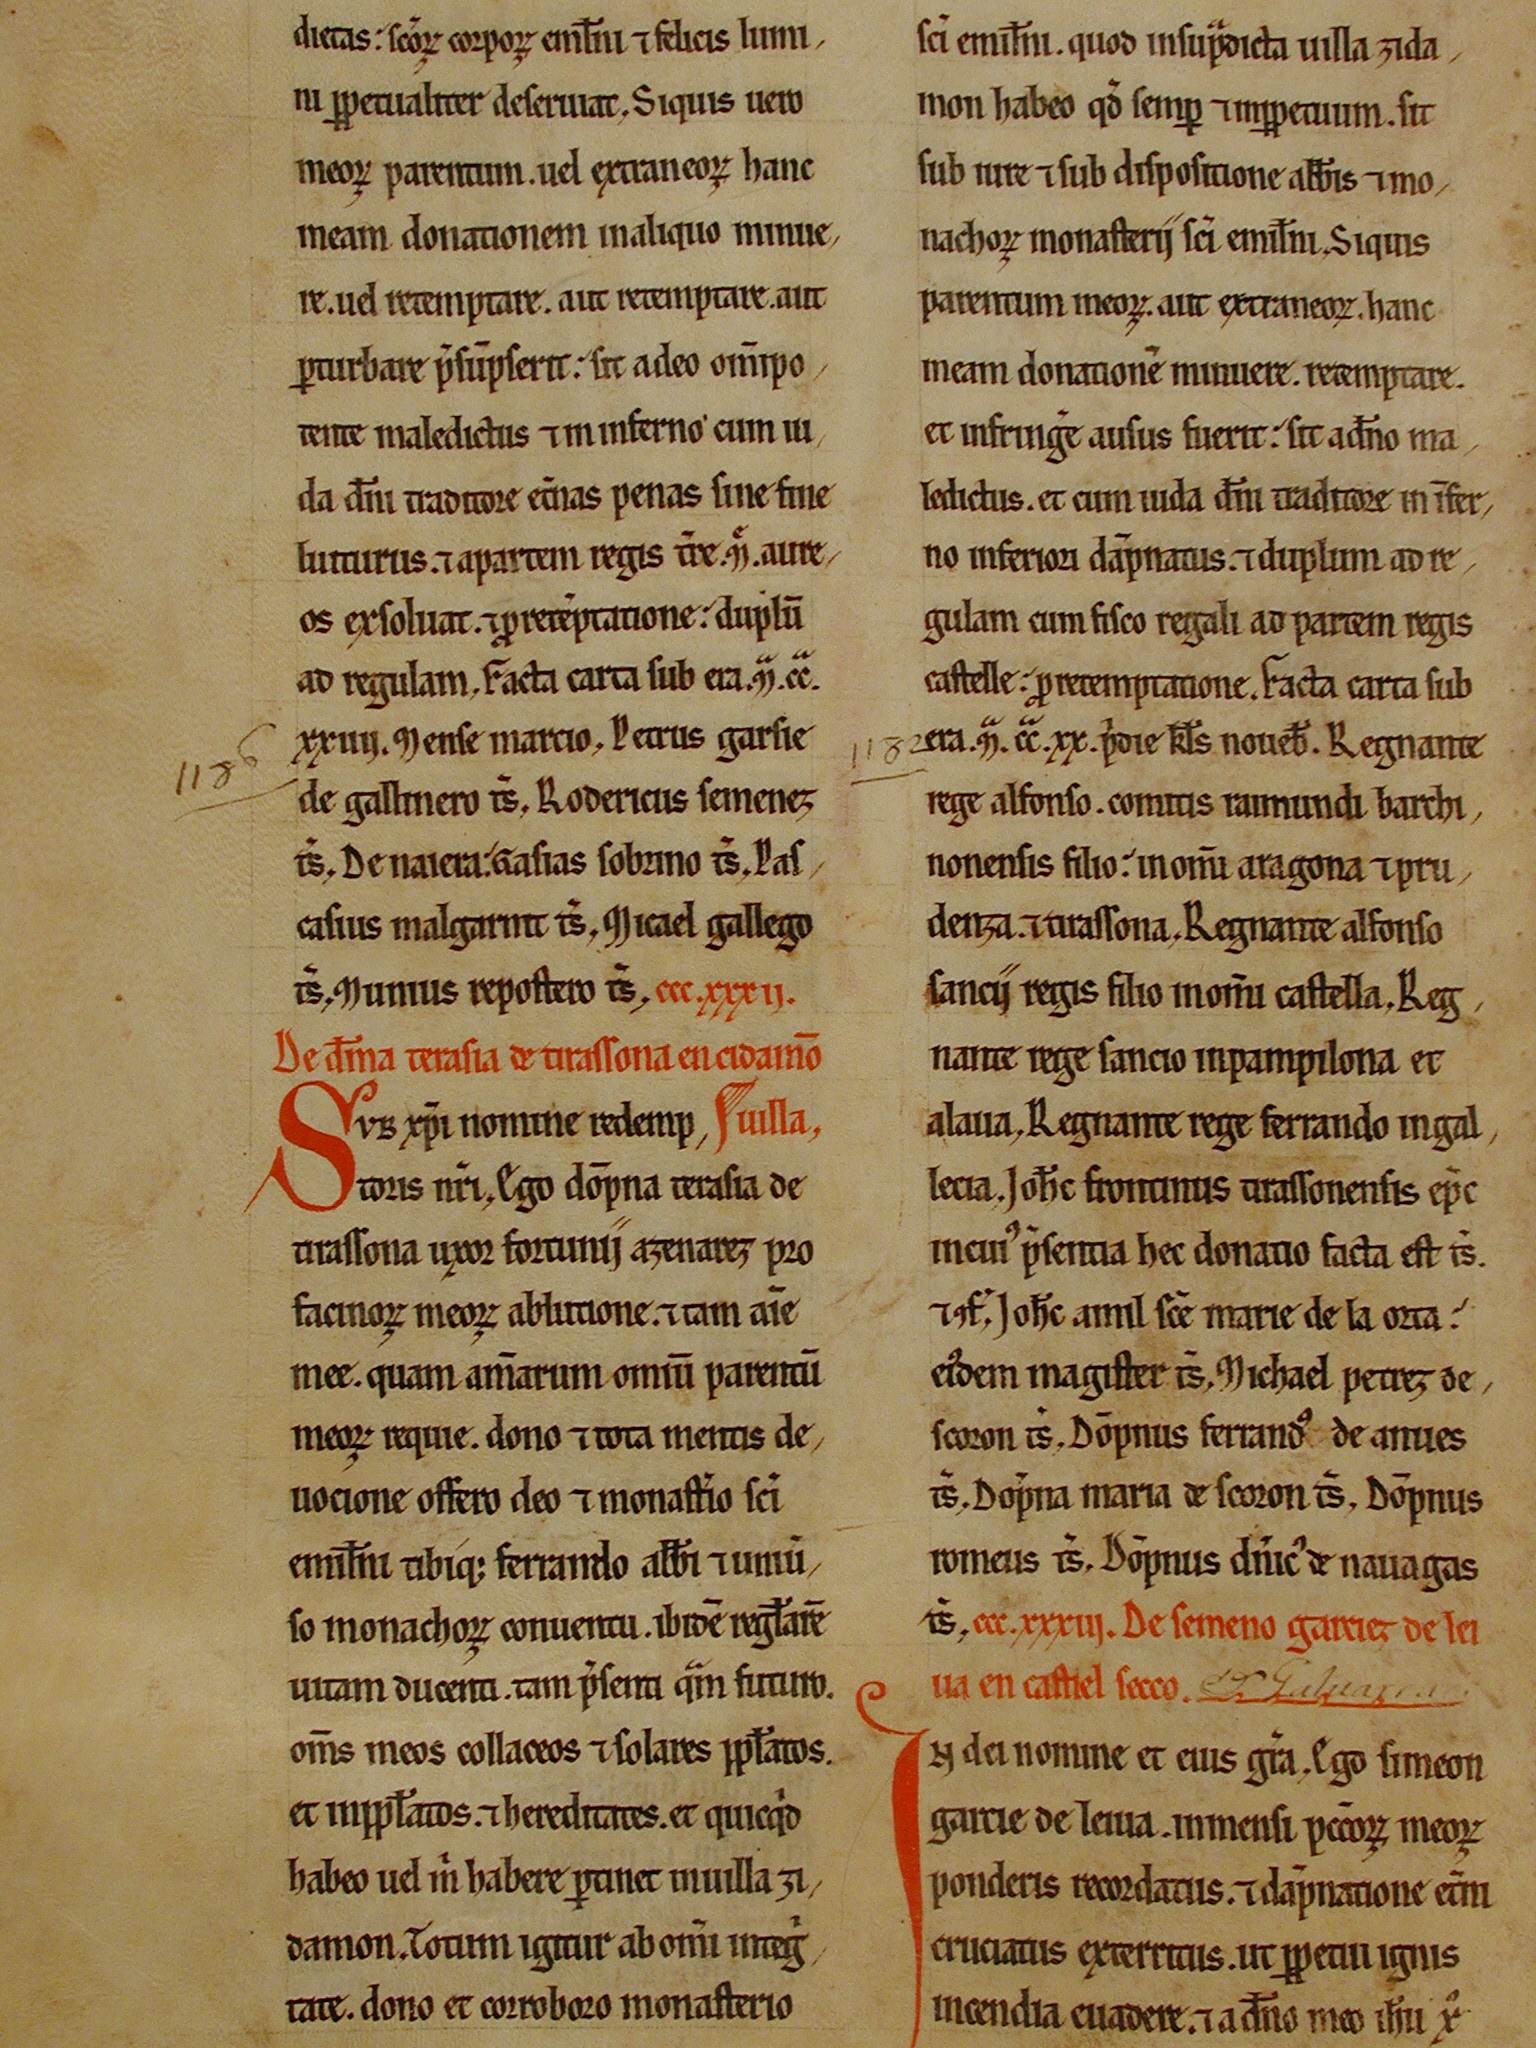 dictas: scoꝝ corpoꝝ emilˉni ⁊ felicis lumi,
ni ꝑpetualiter deseruiat. Siquis uero
meoꝝ parentum. uel extraneoꝝ hanc
meam donationem inaliquo minue,
re. uel retemptare. aut retemptare. aut
ꝑturbare p̄sūpserit: sit adeo om̄ipo,
tente maledictus ⁊ in inferno cum iu,
da dn̄i traditore et̄nas penas sine fine
luiturus. ⁊ apartem regis t̄re. ɱ̊. aure,
os exsoluat. ⁊ ꝓ retēptatione: duplū
ad regulam. Facta carta sub era. ɱᵃ. ccᵃ.
xxiiij. Mense marcio. Petrus garsie
1186
de gallinero ts̄. Rodericus semenez
ts̄. De naiera: Gasias sobrino ts̄. Pas,
casius malgarint ts̄. Micael gallego
ts̄. Munius repostero ts̄. ccc.xxxii.
De dn̄na terasia de tirassona en cidamō
Svb xp̄i nomine redemp, uilla,
toris nr̄i. Ego dōpna terasia de
tirassona uxor fortunij azenarez pro
facinoꝝ meoꝝ ablutione. ⁊ tam aīe
mee. quam am̄arum omiū parentū
meoꝝ requie. dono ⁊ tota mentis de,
uocione offero deo ⁊ monastīo scī
emilˉni tibiq; ferrando abbi ⁊ uniū,
so monachoꝝ conuentu. ibidē regłarē
uitam ducenti. tam p̄senti qᵃm futuro.
om̄s meos collaceos ⁊ solares ppłatos.
et inppłatos. ⁊ hereditates. et quicqⁱd
habeo uel m̄ habere ꝑtinet inuilla zi,
damon. Totum igitur ab om̄i integⁱ,
tate. dono et corroboro monasterio
scī emilˉni. quod insupᵃdicta uilla zida,
mon habeo qd̄ semꝑ ⁊ inꝑpetuum. sit
sub iure ⁊ sub dispositione abbis ⁊ mo,
nachoꝝ monasterij scī emilˉni. Siquis
parentum meoꝝ. aut extraneoꝝ. hanc
meam donationē minuere. retemptare.
et infringēe ausus fuerit: sit adn̄o ma,
ledictus. et cum iuda dn̄i traditore in īfer,
no inferiori dāpnatus. ⁊ duplum ad re,
gulam cum fisco regali ad partem regis
castelle: ꝓ retemptatione. Facta carta sub
1182
era. ɱᵃ. ccᵃ. xx. p̄die kłs noueb̄. Regnante
rege alfonso. comitis raimundi barchi,
nonensis filio: in om̄i aragona ⁊ pru,
denza. ⁊ tirassona. Regnante alfonso
sancij regis filio in om̄i castella. Reg,
nante rege sancio inpampilona et
alaua. Regnante rege ferrando in gal,
lecia. Joh̄c frontinus tirassonensis ep̄c
incuiꝰ p̄sentia hec donatio facta est ts̄.
⁊ ꝯf̄. Joh̄c amil scē marie de la orta:
eiꝰdem magister ts̄. Michael petrez de,
scoron ts̄. Dōpnus ferrandꝰ de anues
ts̄. Dōpna maria de scoron ts̄. Dōpnus
romeus ts̄. Dōpnus dn̄icꝰ de nauagas
ts̄. ccc.xxxiii. De semeno garciez de lei
ua en castiel secco.
IN dei nomine et eius gr̄a. Ego simeon
garcie de leiua. inmensi pcc̄oꝝ meoꝝ
ponderis recordatus. ⁊ dāpnatione et̄ni
cruciatus exterritus. ut ꝑpetui ignis
incendia euadere. ⁊ a dn̄o meo ih̄u xꝰ